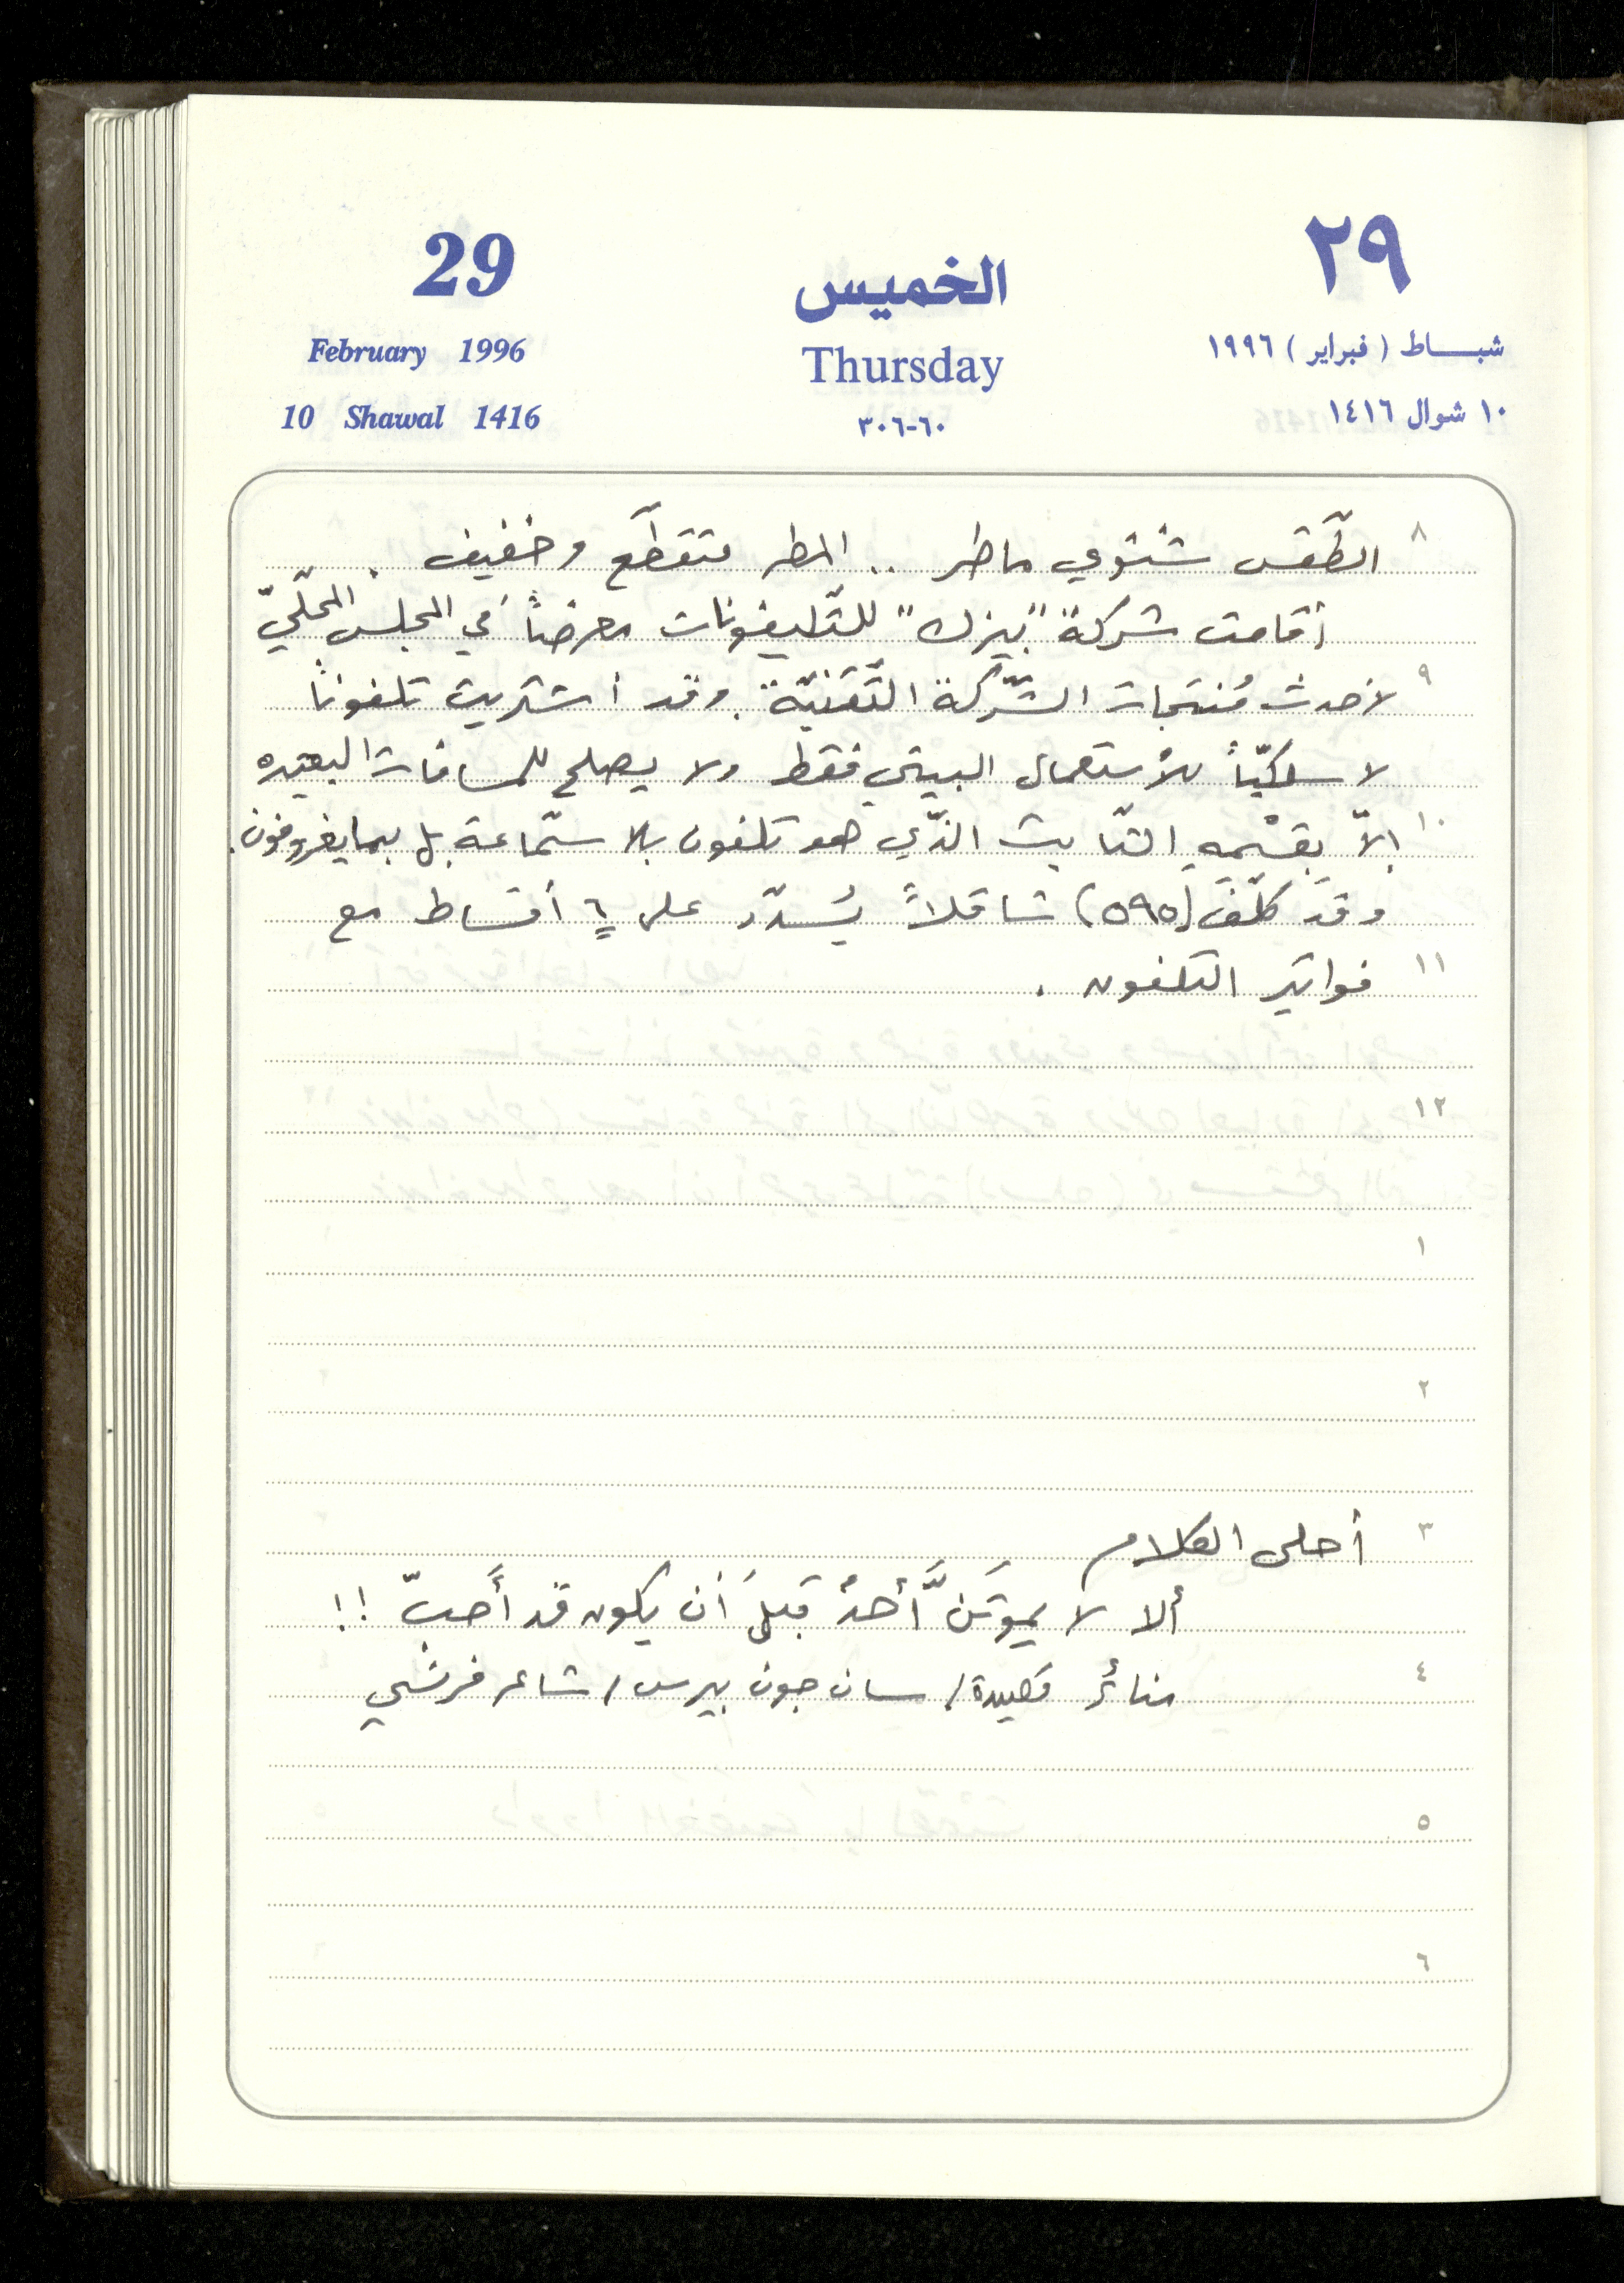 29
الخميس
٢٩
February 1996
Thursday
شبـــاط ( فبراير ) ١٩٩٦
10 Shawal 1416
٦٠-٣٠٦
١٠ شوال ١٤١٦
٨
الطّقس شتوي ماطر .. المطر متقطّع وخفيف .
أقامت شركة "بيزك" للتّليفونات معرضاً في المجلس المحلّيّ
٩
لأحدث مُنتجات الشّركة التّقنيّة. وقد اشتريت تلفوناً
لاسلكيّاً للأستعمال البيتي فقط ولا يصلح للمسافات البعيده
١٠
إلاّ بقسْمِهِ الثّابت الذّي هو تلفون بلا سمّاعة بل بمايغروفون.
وقد كلّفَ (٥٩٥) شاقلاً يُسدّد على ٦ أقساط مع
١١
فواتير التلفون .
١٢
١
٢
٣
أحلى الكلام
ألا لا يموتَنَّ أحدٌ قبلَ أن يكون قد أَحبّ !!
٤
منائر قصيدة / سان جون بيرس / شاعر فرنسي
٥
٦